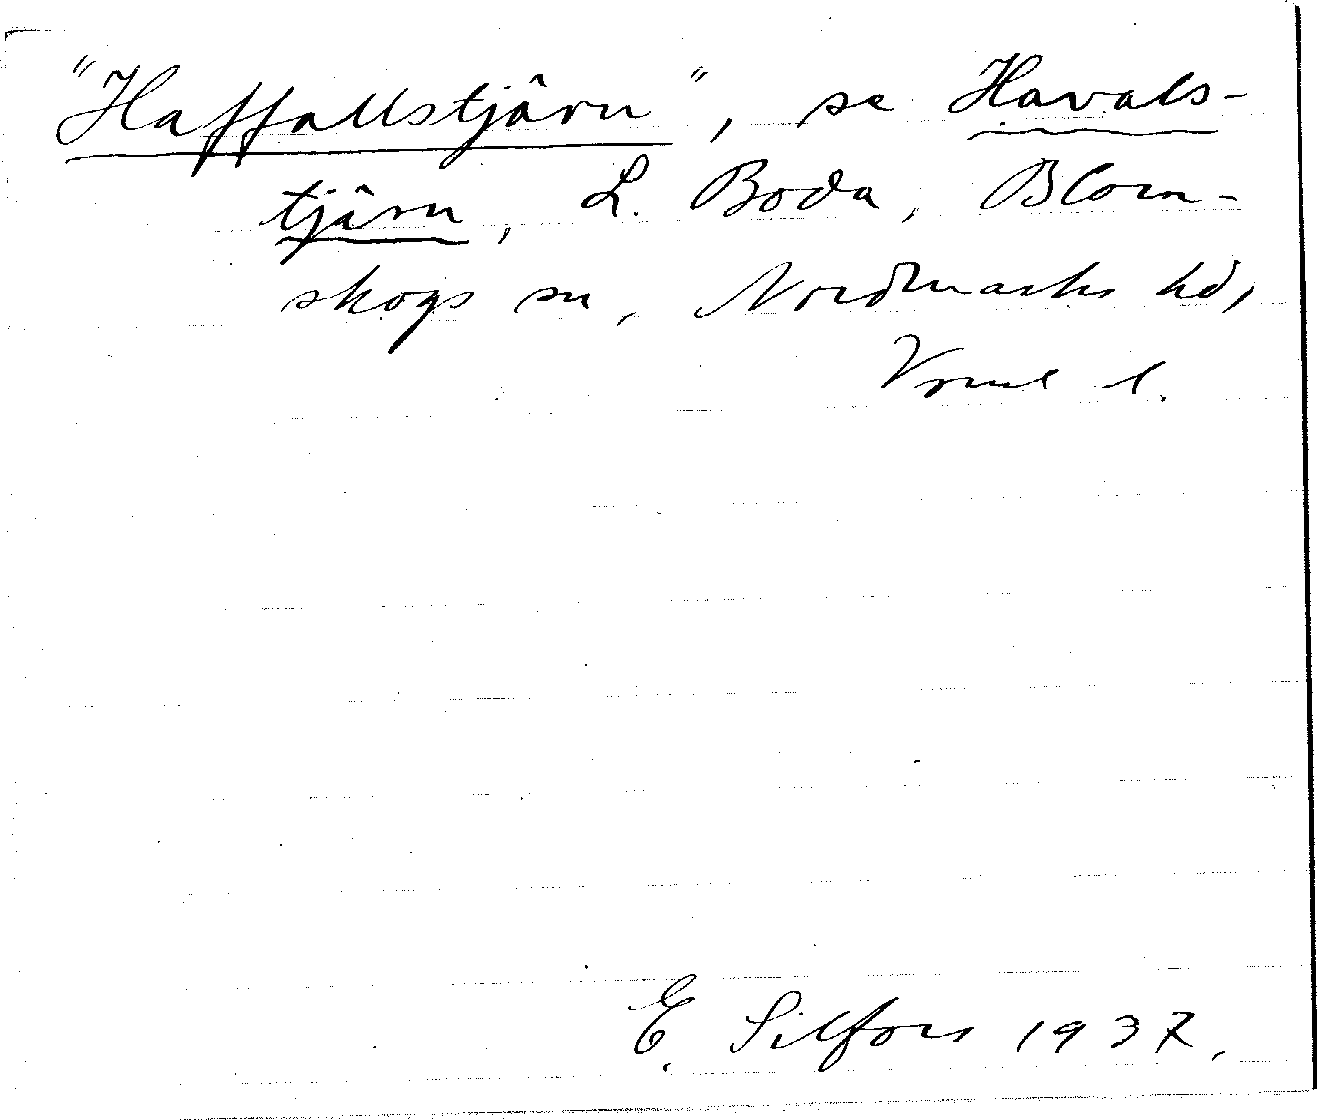 "Haffallstjärn", se Havals-
tjärn, L. Boda, Blom-
skogs sn, Nordmarks hd,
Vrml l.
E. Silfors 1937.